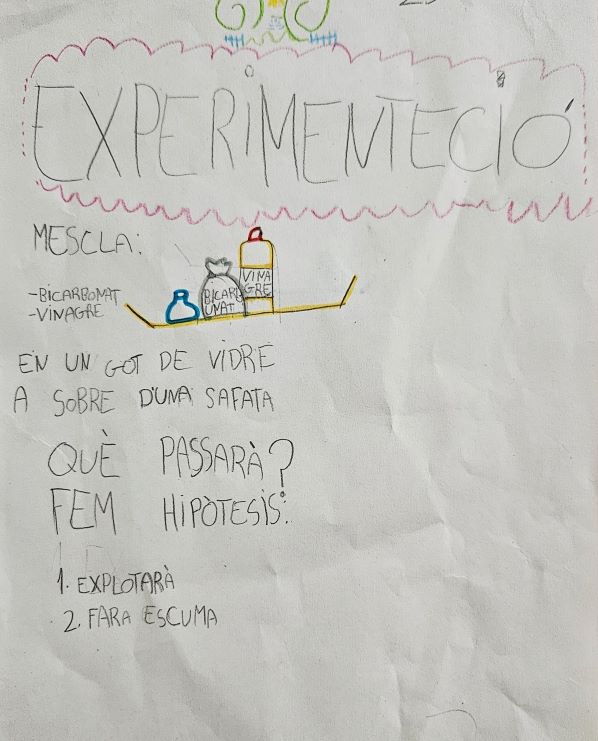 EXPERIMENTECIÓ
MESCLA:
-BICARBONAT
-VINAGRE
BICARB
UNAT
VINA
GRE
EN UN GOT DE VIDRE
A SOBRE D'UNA SAFATA
QUÈ PASSARÀ?
FEM HIPÒTESIS:
1. EXPLOTARÀ
2. FARA ESCUMA